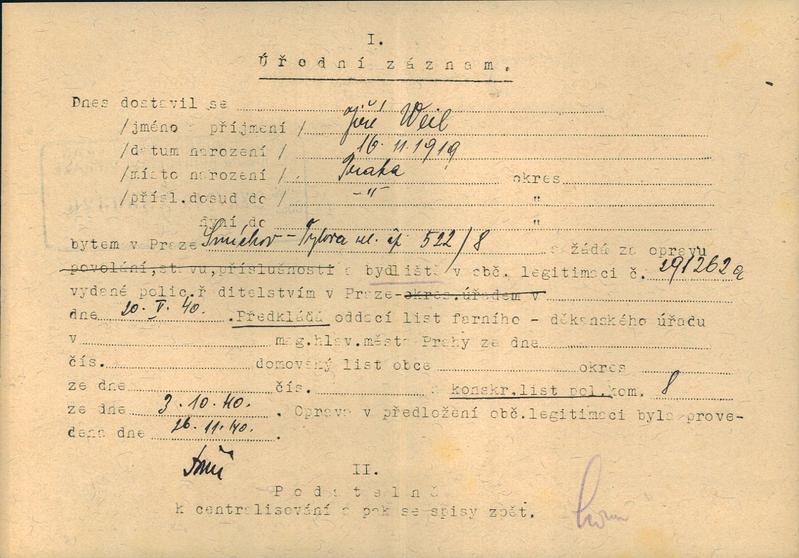 I.
Úřodní záznam.
Dnes dostavil se
/jméno a příjmení / Jiří Weil
/datum narození / 16.11.1919
/místo narození / Praha okres
/přísl.dosud do / -"- "
nyní do "
bytem v Praze Smíchov - Tylova ul. čp. 522/8 a žádá za opravu
povolání, stavu, příslušnosti a bydliště v obč. legitimaci č. 291262
vydané polic.ř ditelstvím v Praze-okres.úřadem v
dne 20. V. 40. .Předkládá oddací list farního - děkanského úřadu
v mag.hlav.města Prahy ze dne
čís. domovský list obce okres
ze dne čís. a konskr.list pol.kom. 8
ze dne 3.10.40. . Oprava v předložení obč.legitimaci byla prove-
dena dne 26.11.40.
II.
Podatelně
k centralisování a pak se spisy zpět.